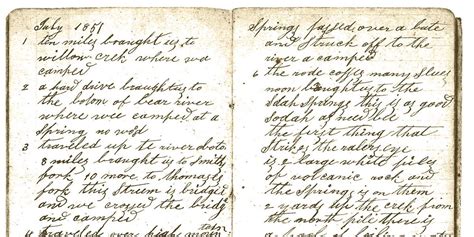 July 1857
1 ten miles braught us to
willow crek where we
camped
2 a hard drive braught us to
the botom of bear river
where wee camped at a
Spring no wod
3 traveled up te river
8 miles braught us to Smiths
fork 10 move to Thomases
fork this Streem is bridged
and we croysed the bridg
and camped
4 traveled over high
Springs passed over a bute
and Struck off to the
river a camped
6 the rode many
noon braught us to the
Sodah Springs this is as good
Sodah as need bee
the first thing that
Strikes the eye
is 2 large white piles
of volcanic rock and
the Springs is on them
2 yards up the crek from
the month pile there is